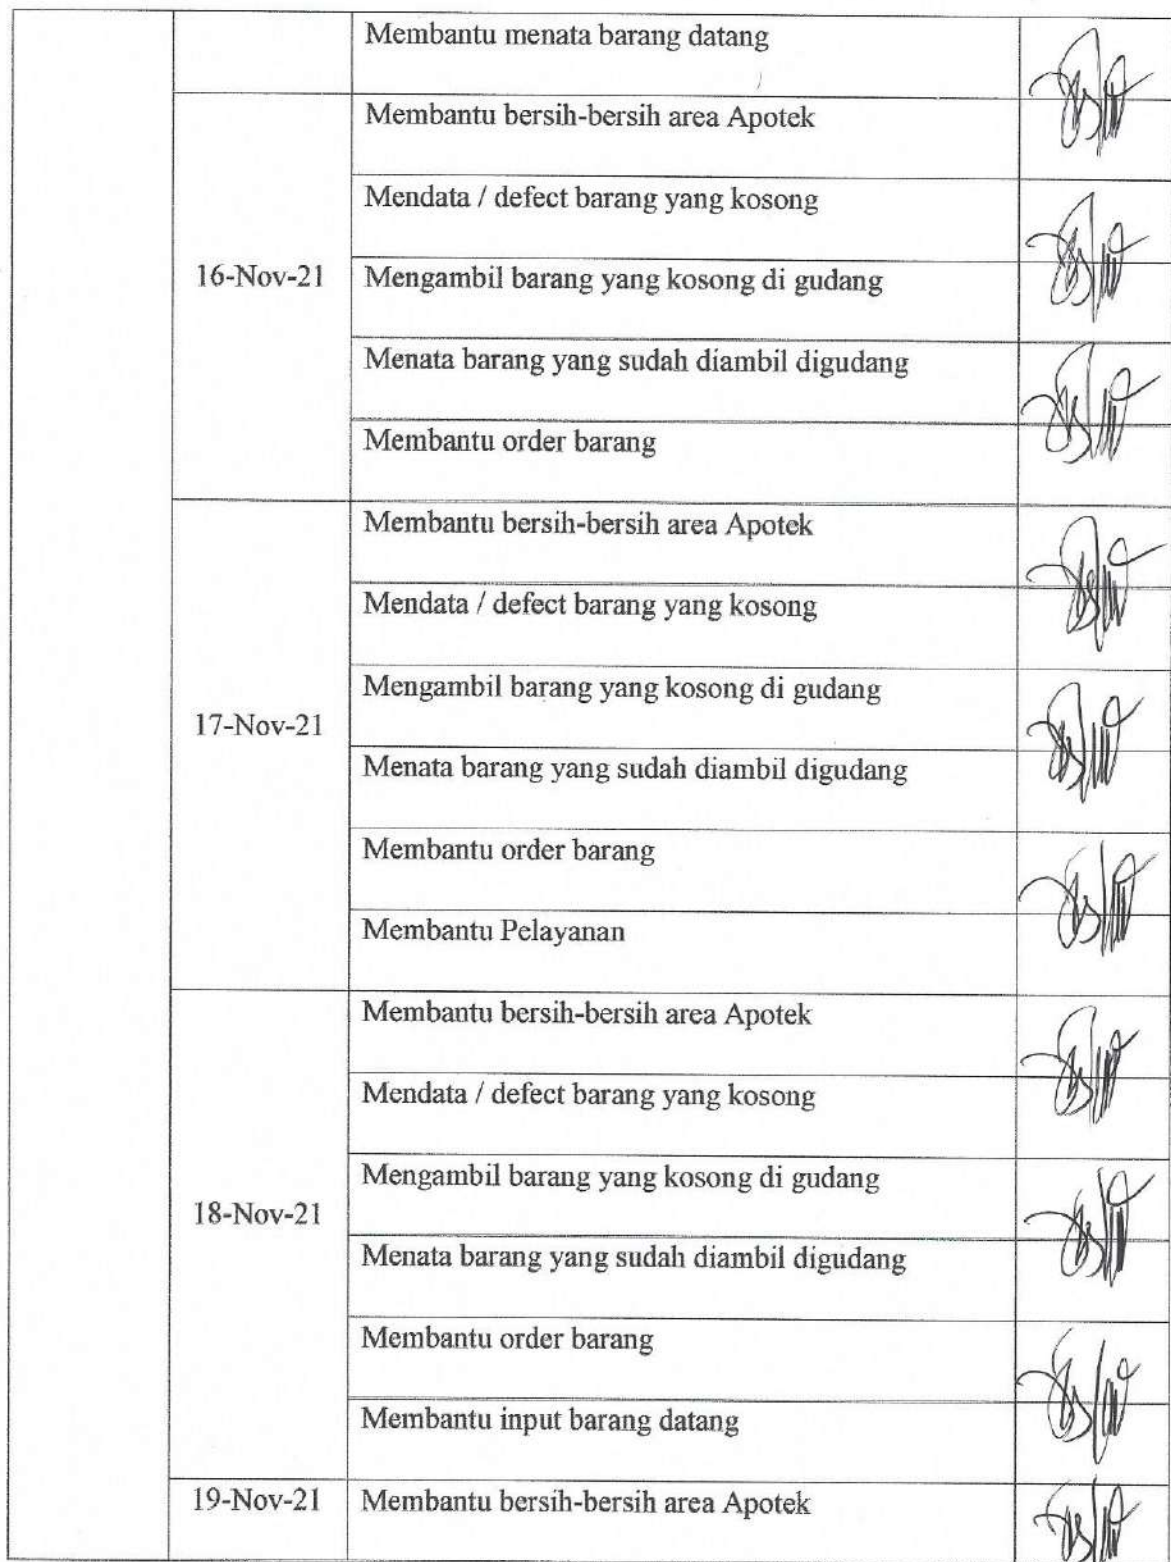 Membantu menata barang datang
Membantu bersih-bersih area Apotek
Mendata / defect barang yang kosong
16-Nov-21
Mengambil barang yang kosong di gudang
Menata barang yang sudah diambil digudang
Membantu order barang
Membantu bersih-bersih area Apotek
Mendata / defect barang yang kosong
Mengambil barang yang kosong di gudang
17-Nov-21
Menata barang yang sudah diambil digudang
Membantu order barang
Membantu Pelayanan
Membantu bersih-bersih area Apotek
Mendata / defect barang yang kosong
Mengambil barang yang kosong di gudang
18-Nov-21
Menata barang yang sudah diambil digudang
Membantu order barang
Membantu input barang datang
19-Nov-21
Membantu bersih-bersih area Apotek